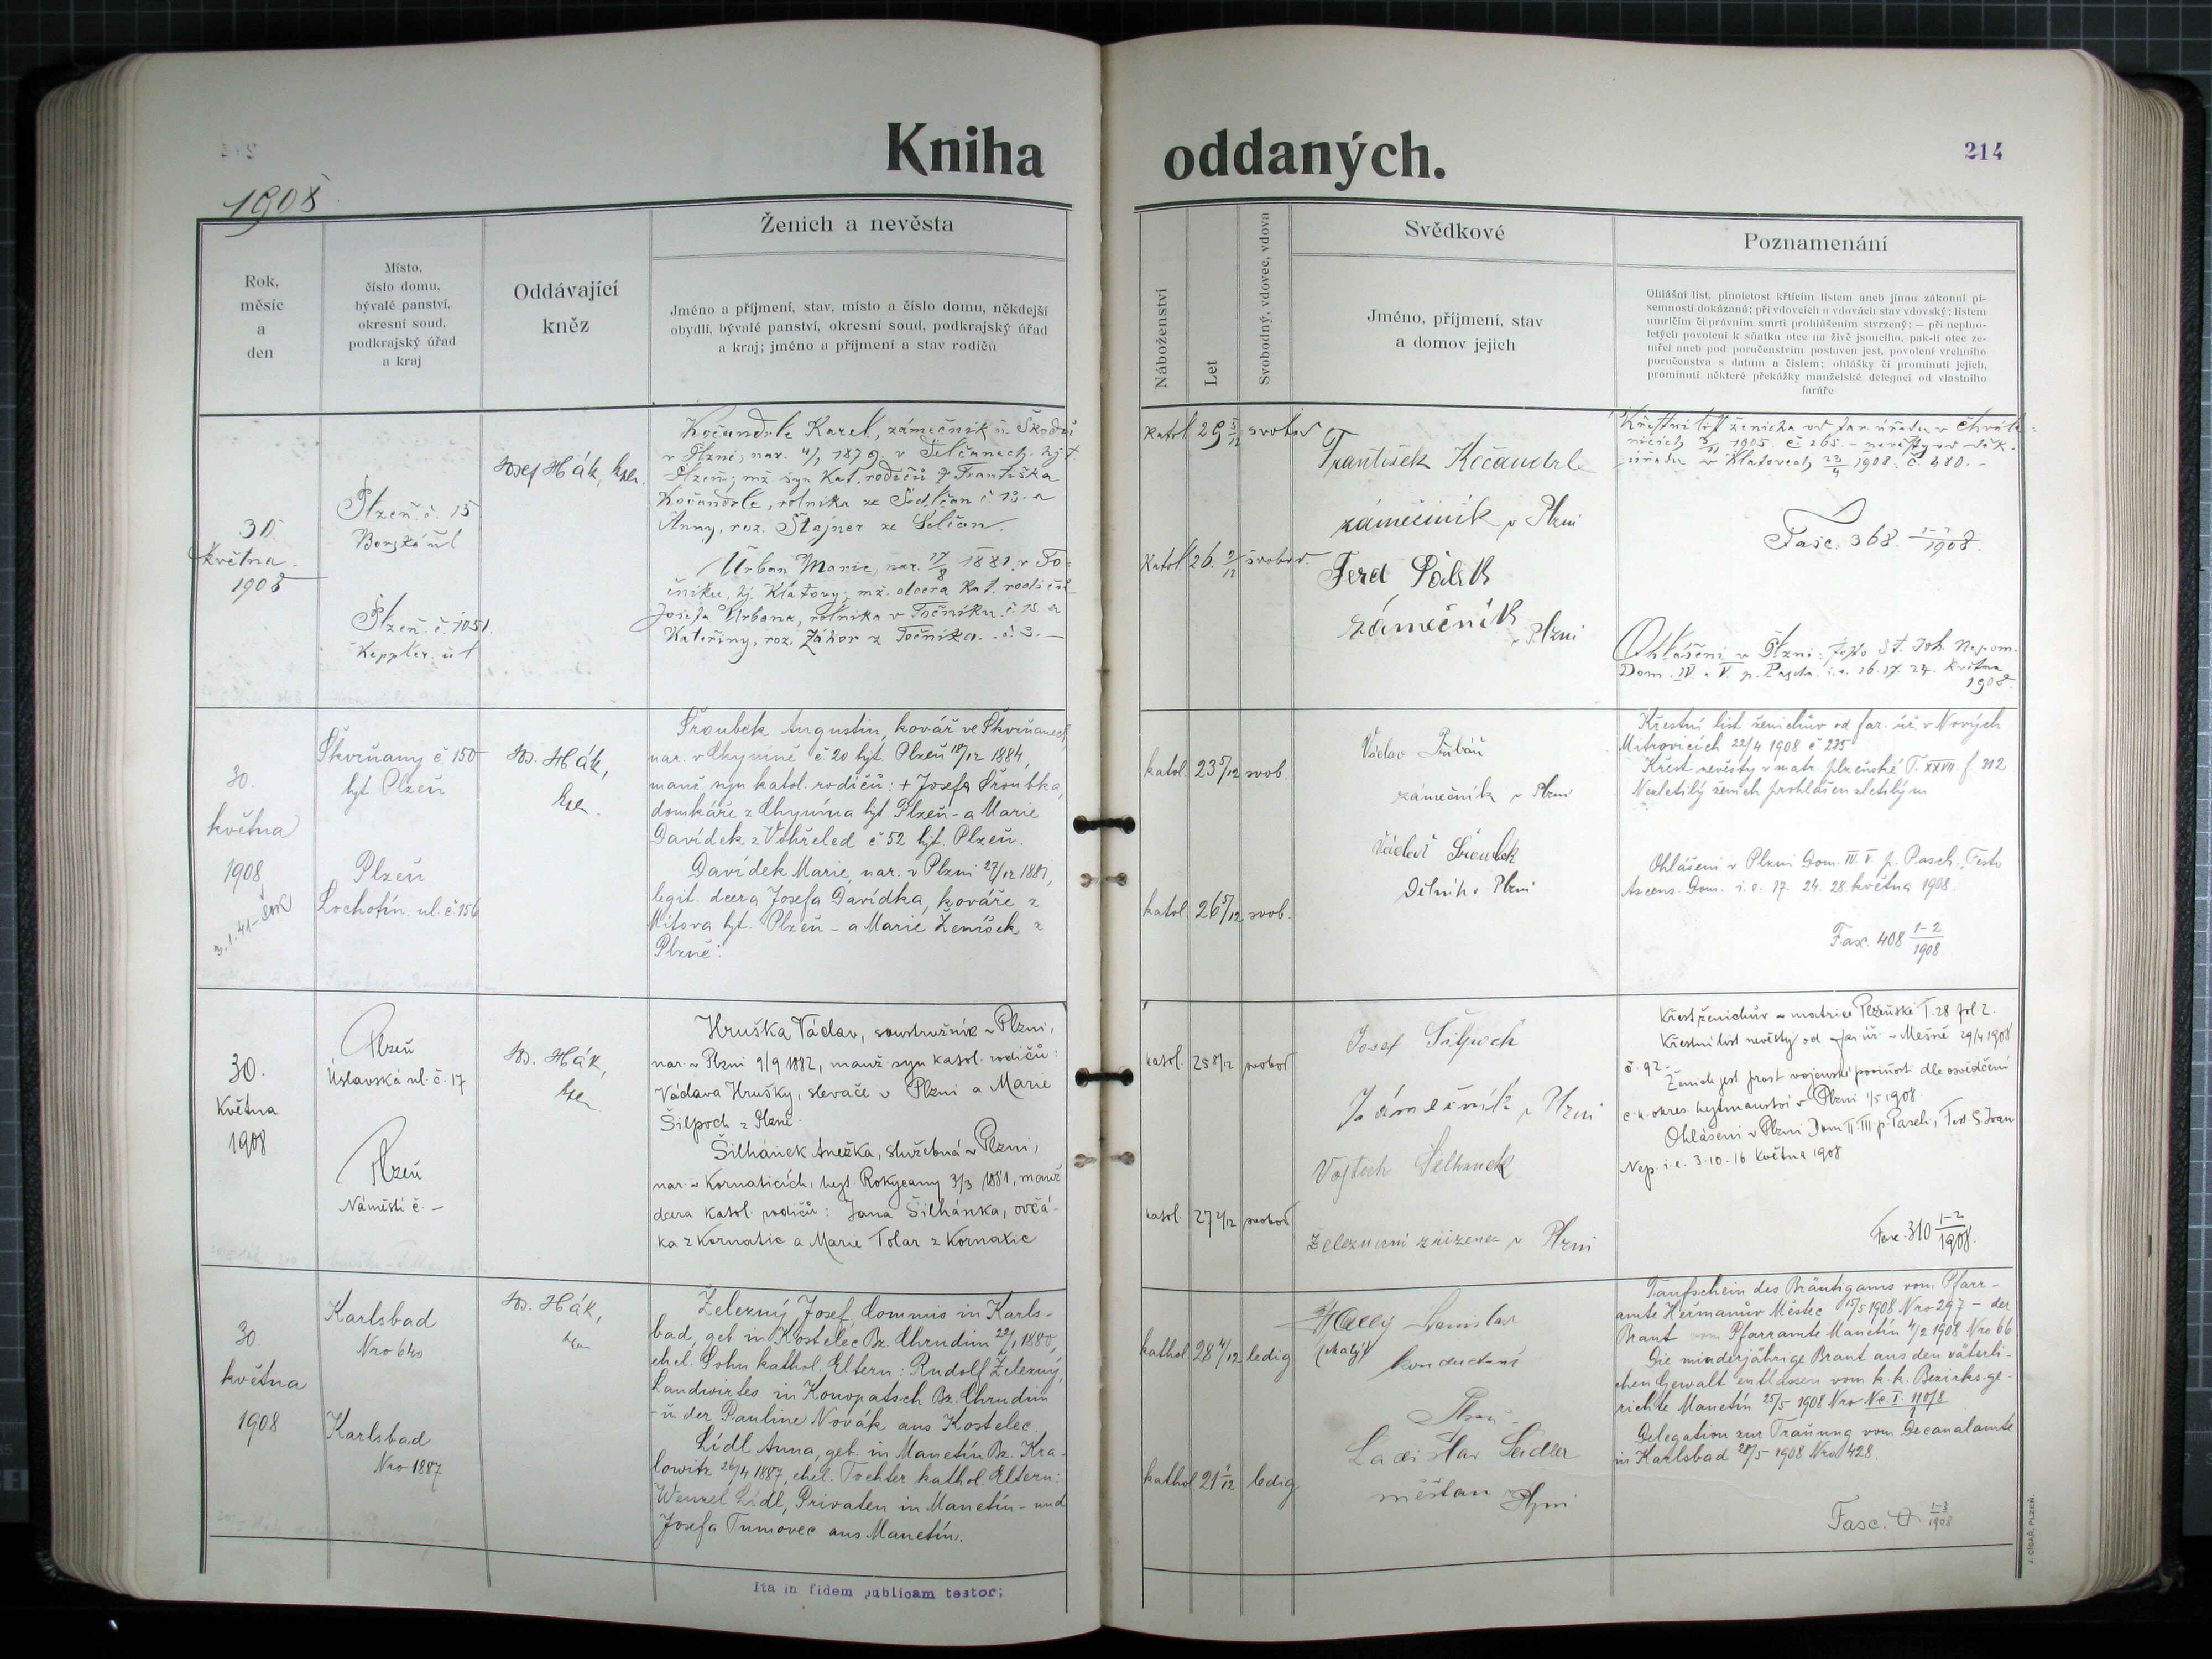 Kniha oddaných.
214
1908
Rok,
měsíc
a
den
Místo,
číslo domu,
bývalé panství,
okresní soud,
podkrajský úřad
a kraj
Oddávající
kněz
Ženich a nevěsta
Jméno a příjmení, stav, místo a číslo domu, někdejší
obydlí, bývalé panství, okresní soud, podkrajský úřad
a kraj; jméno a příjmení a stav rodičů
Náboženství
Let
Svobodný, vdovec, vdova
Svědkové
Jméno, příjmení, stav
a domov jejich
Poznamenání
Ohlášní list, plnoletost křticím listem aneb jinou zákonní pí-
semností dokázaná; při vdovcích a vdovách stav vdovský; listem
umrlčím či právním smrti prohlášením stvrzený; — při neplno-
letých povolení k sňatku otce na živě jsoucího, pak-li otec ze-
mřel aneb pod poručenstvím postaven jest, povolení vrchního
poručenstva s datum a číslem; ohlášky či prominutí jejich,
prominutí některé překážky manželské delegací od vlastního
faráře
30.
května
1908
Plzeň č. 15
Borská ul
Plzeň č. 1051
Keppler. ul
Josef Hák, kpn.
Kočandrle Karel, zámečník u Škodů
v Plzni, nar. 4/1 1879. v
Plzeň; mž. syn kat. rodičů † Františka
Kočandrle, rolníka ze Sedlčan č 13. a
Anny, roz. Štajner ze
Urban Marie, nar. 17/8 1881. v To-
čníku, hj. Klatovy; mž. dcera kat. rodičů
Josefa Urbana, rolníka v Točníku č. 15. a
Kateřiny, roz. Záhoř z Točníka. č. 3. —
katol 29 5/12 svobod
katol 26. 9/12 svobod.
František Kočandrle
zámečník v Plzni
Ferd
zámečník
v Plzni
Křestní list ženicha od far. úřadu v Chvále-
nicích 1905. č 265. — nevěsty od děk.
úřadu v Klatovech 23/4 1908. č. 480. —
Fasc. 368. 1-2/1908.
Ohlášeni v Plzni: festo St. Joh. Nepom.
Dom. IV a V. p. Pascha. i.e. 16. 17. 24. května
1908.
30.
května
1908
Škvrňany č 150
hjt Plzeň
Plzeň
Lochotín. ul. č 156
Jos. Hák,
kpn.
Šroubek Augustin, kovář ve Škvrňanech,
nar. v Chyníně č 20 hjt. Plzeň 18/12 1884,
manž. syn katol. rodičů: + Josefa Šroubka,
domkáře z Chynína hjt. Plzeň - a Marie
Davídek z Vohřeled č 52 hjt. Plzeň.
Davídek Marie, nar. v Plzni 27/12 1881,
legit. dcera Josefa Davídka, kováře z
Mítova hjt. Plzeň - a Marie Ženíšek z
Plzně.
katol. 23 5/12 svob.
katol. 26 5/12 svob.
Václav
zámečník v Plzni
Václav Šroubek
Dělník v Plzni
Křestní list ženichův od far. úř. v Nových
Mitrovicích 22/4 1908 č 225
Křest nevěsty v matr. plzeňské T. XXVII. f 312
Nezletilý ženich prohlášen zletilým
Ohlášeni v Plzni Dom. IV. V. p. Pasch., Festo
Ascens. Dom. i.e. 17. 24. 28. května 1908.
Fasc. 408 1-2/1908
30.
Května
1908
Plzeň
Úslavská ul. č. 17
Plzeň
Náměstí č. –
Jos. Hák,
kpn.
Hruška Václav, soustružník v Plzni,
nar. v Plzni 9/9 1882, manž. syn katol. rodičů:
Václava Hrušky, slevače v Plzni a Marie
Šilpoch z Plzně.
Šilhánek Anežka, služebná v Plzni,
nar. v Kornaticích, hejt. Rokycany 3/3 1881, manž
dcera katol. rodičů: Jana Šilhánka, ovčá-
ka z Kornatic a Marie Tolar z Kornatic
katol. 25 8/12 svobod
katol. 27 2/12 svobod
Josef Šilpoch
Zámečník v Plzni
Vojtěch Šilhanek
Železniční zřízenec v Plzni
Křest ženichův v matrice Plzeňské T. 28 fol 2.
Křestní list nevěsty od far. úř. v Mešně 29/4 1908
č. 92.
Ženich jest prost vojenské povinosti dle osvědčení
c. k. okres. hejtmanství v Plzni 1/5 1908.
Ohlášeni v Plzni Dom II III p. Pasch., Fest. S. Joan
Nep. i.e. 3. 10. 16 května 1908
Fasc. 310 1-2/1908.
30
května
1908
Karlsbad
Nro 640
Karlsbad
Nro 1887
Jos. Hák,
kpn
Železný Josef, Commis in Karls-
bad, geb. in Kostelec Bz. Chrudim 22/1 1880,
ehel. Sohn kathol. Eltern: Rudolf Železný,
Landwirtes in Konopatsch Bz. Chrudim
- u der Pauline Novák aus Kostelec.
Lídl Anna, geb. in Manetín Bz. Kra-
lowitz 26/4 1887, ehel. Tochter kathol. Eltern:
Wenzel Lídl, Privaten in Manetín - und
Josefa Tumovec aus Manetín.
kathol 28 4/12 ledig
kathol 21 1/12 ledig
Stanislav
(Malý)
Ladislav Seidler
měšťan Plzni
Taufschein des Bräutigams vom Pfarr-
amte Heřmanův Městec 15/5 1908 Nro 297 - der
Braut vom Pfarramte Manetín 4/2 1908 Nro 66
Die minderjährige Braut aus den väterli-
chen Gewalt entlassen vom k. k. Bezirks-ge-
richte Manetín 25/5 1908 Nro Nc. I. 110/8
Delegation zur Trauung vom Decanalamte
in Karlsbad 28/5 1908 Nro 428.
Fasc. 1-3/1908
Ita in fidem publicam testor:
J. CÍSAŘ, PLZEŇ.